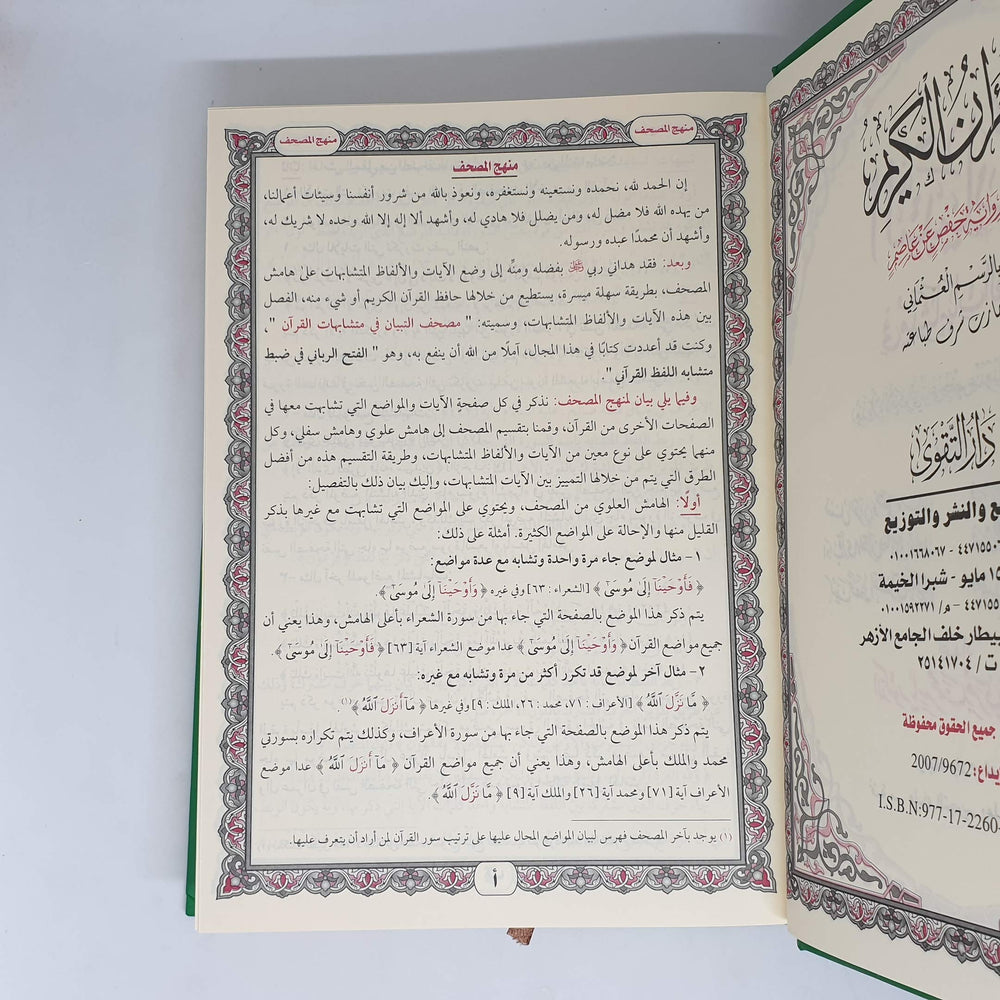 منهج المصحف
منهج المصحف
منهج المصحف
إن الحمد لله، نحمده ونستعينه ونستغفره، ونعوذ بالله من شرور أنفسنا وسيئات أعمالنا،
من يهده الله فلا مضل له، ومن يضلل فلا هادي له، وأشهد ألا إله إلا الله وحده لا شريك له،
وأشهد أن محمدًا عبده ورسوله.
وبعد: فقد هداني ربي ﷻ بفضله ومنِّه إلى وضع الآيات والألفاظ المتشابهات على هامش
المصحف، بطريقة سهلة ميسرة، يستطيع من خلالها حافظ القرآن الكريم أو شيء منه، الفصل
بين هذه الآيات والألفاظ المتشابهات، وسميته: " مصحف التبيان في متشابهات القرآن "،
وكنت قد أعددت كتابًا في هذا المجال، آملًا من الله أن ينفع به، وهو " الفتح الرباني في ضبط
متشابه اللفظ القرآني ".
وفيما يلي بيان لمنهج المصحف: نذكر في كل صفحةٍ الآيات والمواضع التي تشابهت معها في
الصفحات الأخرى من القرآن، وقمنا بتقسيم المصحف إلى هامش علوي وهامش سفلي، وكل
منهما يحتوي على نوع معين من الآيات والألفاظ المتشابهات، وطريقة التقسيم هذه من أفضل
الطرق التي يتم من خلالها التمييز بين الآيات المتشابهات، وإليك بيان ذلك بالتفصيل:
أولًا: الهامش العلوي من المصحف، ويحتوي على المواضع التي تشابهت مع غيرها بذكر
القليل منها والإحالة على المواضع الكثيرة. أمثلة على ذلك:
١ - مثال لموضع جاء مرة واحدة وتشابه مع عدة مواضع:
﴿ فَأَوْحَيْنَآ إِلَىٰ مُوسَىٰٓ ﴾ [الشعراء : ٦٣] وفي غيره ﴿ وَأَوْحَيْنَآ إِلَىٰ مُوسَىٰٓ ﴾.
يتم ذكر هذا الموضع بالصفحة التي جاء بها من سورة الشعراء بأعلى الهامش، وهذا يعني أن
جميع مواضع القرآن ﴿ وَأَوْحَيْنَآ إِلَىٰ مُوسَىٰٓ ﴾ عدا موضع الشعراء آية [٦٣] ﴿ فَأَوْحَيْنَآ إِلَىٰ مُوسَىٰٓ ﴾.
٢ - مثال آخر لموضع قد تكرر أكثر من مرة وتشابه مع غيره:
﴿ مَّا نَزَّلَ ٱللَّهُ ﴾ [الأعراف : ٧١، محمد : ٢٦، الملك : ٩] وفي غيرها ﴿ مَآ أَنزَلَ ٱللَّهُ ﴾(١).
يتم ذكر هذا الموضع بالصفحة التي جاء بها من سورة الأعراف، وكذلك يتم تكراره بسورتي
محمد والملك بأعلى الهامش، وهذا يعني أن جميع مواضع القرآن ﴿ مَآ أَنزَلَ ٱللَّهُ ﴾ عدا موضع
الأعراف آية [٧١] ومحمد آية [٢٦] والملك آية [٩] ﴿ مَّا نَزَّلَ ٱللَّهُ ﴾.
(١) يوجد بآخر المصحف فهرس لبيان المواضع المحال عليها على ترتيب سور القرآن لمن أراد أن يتعرف عليها.
أ
الكريم
حفص عن عاصم
بالرسم العثماني
شرف طباعته
دار التقوى
والنشر والتوزيع
٠١٠٠١٦٦٨٠٦٧
١٥ مايو - شبرا الخيمة
م/ ٠١٠٠١٥٩٢٢٧١
خلف الجامع الأزهر
ت / ٢٥١٤١٧٠٤
جميع الحقوق محفوظة
2007/9672
I.S.B.N:977-17-2260-